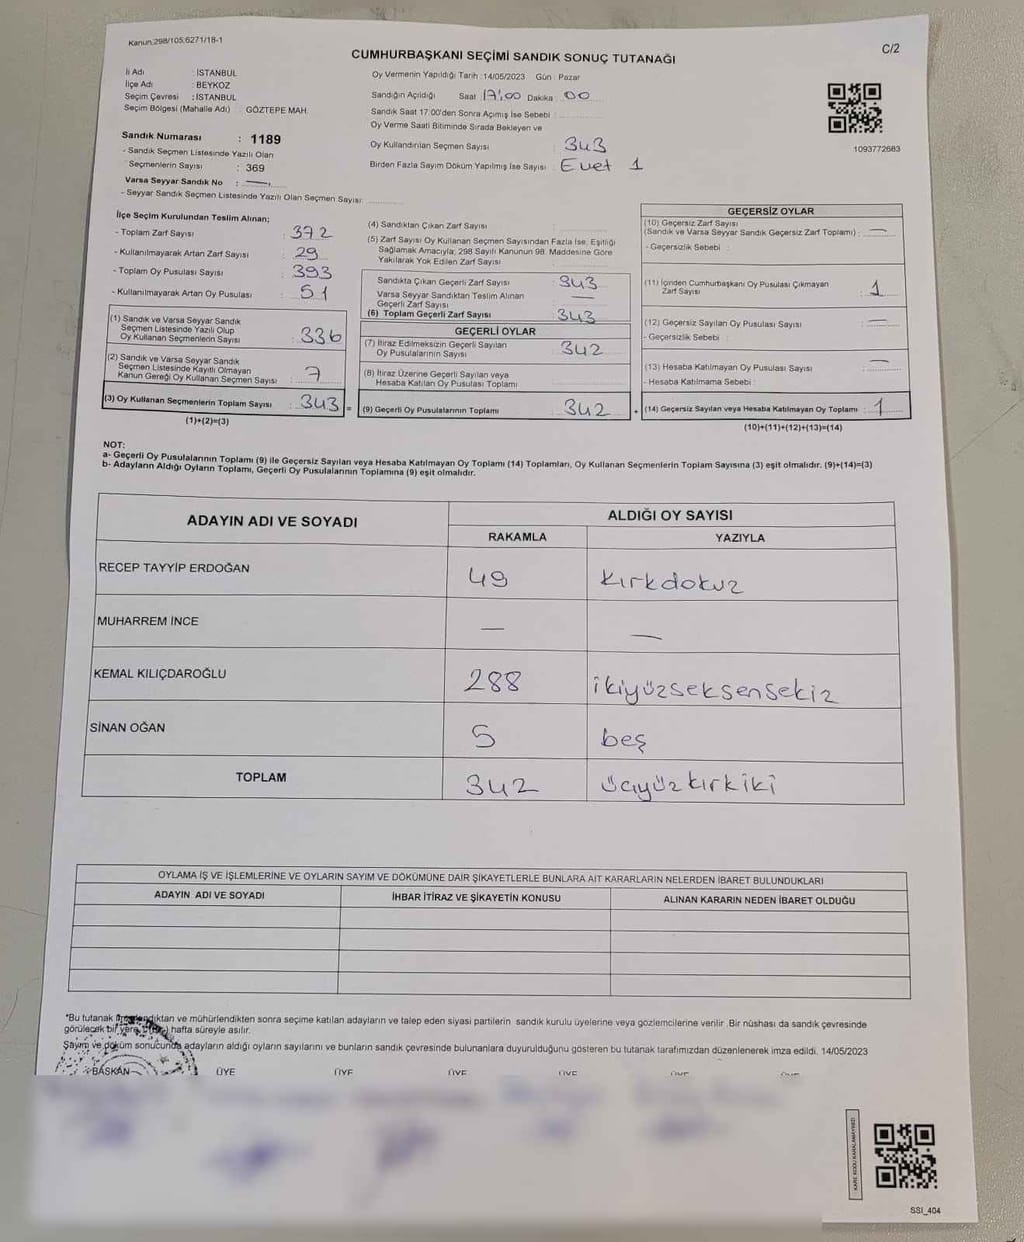 Kanun:298/105;6271/18-1
C/2
CUMHURBAŞKANI SEÇİMİ SANDIK SONUÇ TUTANAĞI
İli Adı : İSTANBUL
İlçe Adı : BEYKOZ
Seçim Çevresi : İSTANBUL
Seçim Bölgesi (Mahalle Adı) : GÖZTEPE MAH.
Sandık Numarası : 1189
- Sandık Seçmen Listesinde Yazılı Olan
Seçmenlerin Sayısı : 369
Varsa Seyyar Sandık No : —
- Seyyar Sandık Seçmen Listesinde Yazılı Olan Seçmen Sayısı:
Oy Vermenin Yapıldığı Tarih :14/05/2023 Gün : Pazar
Sandığın Açıldığı Saat 17:00 Dakika : 00
Sandık Saat 17:00'den Sonra Açımış İse Sebebi :
Oy Verme Saati Bitiminde Sırada Bekleyen ve
Oy Kullandırılan Seçmen Sayısı : 343
Birden Fazla Sayım Döküm Yapılmış İse Sayısı : Evet 1
1093772683
İlçe Seçim Kurulundan Teslim Alınan;
- Toplam Zarf Sayısı : 372
- Kullanılmayarak Artan Zarf Sayısı : 29
- Toplam Oy Pusulası Sayısı : 393
- Kullanılmayarak Artan Oy Pusulası : 51
(1) Sandık ve Varsa Seyyar Sandık
Seçmen Listesinde Yazılı Olup
Oy Kullanan Seçmenlerin Sayısı : 336
(2) Sandık ve Varsa Seyyar Sandık
Seçmen Listesinde Kayıtlı Olmayan
Kanun Gereği Oy Kullanan Seçmen Sayısı : 7
(3) Oy Kullanan Seçmenlerin Toplam Sayısı : 343 =
(1)+(2)=(3)
(4) Sandıktan Çıkan Zarf Sayısı :
(5) Zarf Sayısı Oy Kullanan Seçmen Sayısından Fazla İse, Eşitliği
Sağlamak Amacıyla; 298 Sayılı Kanunun 98. Maddesine Göre
Yakılarak Yok Edilen Zarf Sayısı :
Sandıkta Çıkan Geçerli Zarf Sayısı : 343
Varsa Seyyar Sandıktan Teslim Alınan
Geçerli Zarf Sayısı : —
(6) Toplam Geçerli Zarf Sayısı : 343
GEÇERLİ OYLAR
(7) İtiraz Edilmeksizin Geçerli Sayılan
Oy Pusulalarının Sayısı : 342
(8) İtiraz Üzerine Geçerli Sayılan veya
Hesaba Katılan Oy Pusulası Toplamı :
(9) Geçerli Oy Pusulalarının Toplamı : 342 +
GEÇERSİZ OYLAR
(10) Geçersiz Zarf Sayısı
(Sandık ve Varsa Seyyar Sandık Geçersiz Zarf Toplamı) : —
- Geçersizlik Sebebi :
(11) İçinden Cumhurbaşkanı Oy Pusulası Çıkmayan
Zarf Sayısı : 1
(12) Geçersiz Sayılan Oy Pusulası Sayısı : —
- Geçersizlik Sebebi :
(13) Hesaba Katılmayan Oy Pusulası Sayısı : —
- Hesaba Katılmama Sebebi :
(14) Geçersiz Sayılan veya Hesaba Katılmayan Oy Toplamı : 1
(10)+(11)+(12)+(13)=(14)
NOT:
a- Geçerli Oy Pusulalarının Toplamı (9) ile Geçersiz Sayılan veya Hesaba Katılmayan Oy Toplamı (14) Toplamları, Oy Kullanan Seçmenlerin Toplam Sayısına (3) eşit olmalıdır. (9)+(14)=(3)
b- Adayların Aldığı Oyların Toplamı, Geçerli Oy Pusulalarının Toplamına (9) eşit olmalıdır.
ADAYIN ADI VE SOYADI ALDIĞI OY SAYISI
RAKAMLA YAZIYLA
RECEP TAYYİP ERDOĞAN 49 kırkdokuz
MUHARREM İNCE — —
KEMAL KILIÇDAROĞLU 288 ikiyüzseksensekiz
SİNAN OĞAN 5 beş
TOPLAM 342 üçyüzkırkiki
OYLAMA İŞ VE İŞLEMLERİNE VE OYLARIN SAYIM VE DÖKÜMÜNE DAİR ŞİKAYETLERLE BUNLARA AİT KARARLARIN NELERDEN İBARET BULUNDUKLARI
ADAYIN ADI VE SOYADI İHBAR İTİRAZ VE ŞİKAYETİN KONUSU ALINAN KARARIN NEDEN İBARET OLDUĞU
*Bu tutanak imzalandıktan ve mühürlendikten sonra seçime katılan adayların ve talep eden siyasi partilerin sandık kurulu üyelerine veya gözlemcilerine verilir. Bir nüshası da sandık çevresinde
görülecek bir yere 1 (Bir) hafta süreyle asılır.
Sayım ve döküm sonucunda adayların aldığı oyların sayılarını ve bunların sandık çevresinde bulunanlara duyurulduğunu gösteren bu tutanak tarafımızdan düzenlenerek imza edildi. 14/05/2023
BAŞKAN ÜYE ÜYE ÜYE ÜYE ÜYE
KARE KODU KARALAMAYINIZ!
SSİ_404